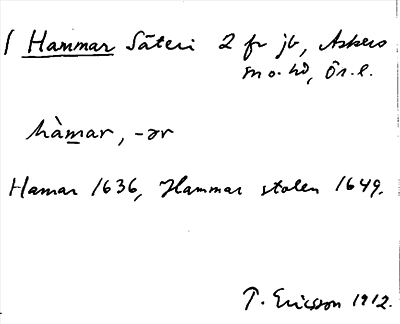 Hammar Säteri 2 fr jb, Askers
sn o. hd, Ör. l.
hàmar, -ər
Hamar 1636, Hammar stolen 1649.
T. Ericsson 1912.